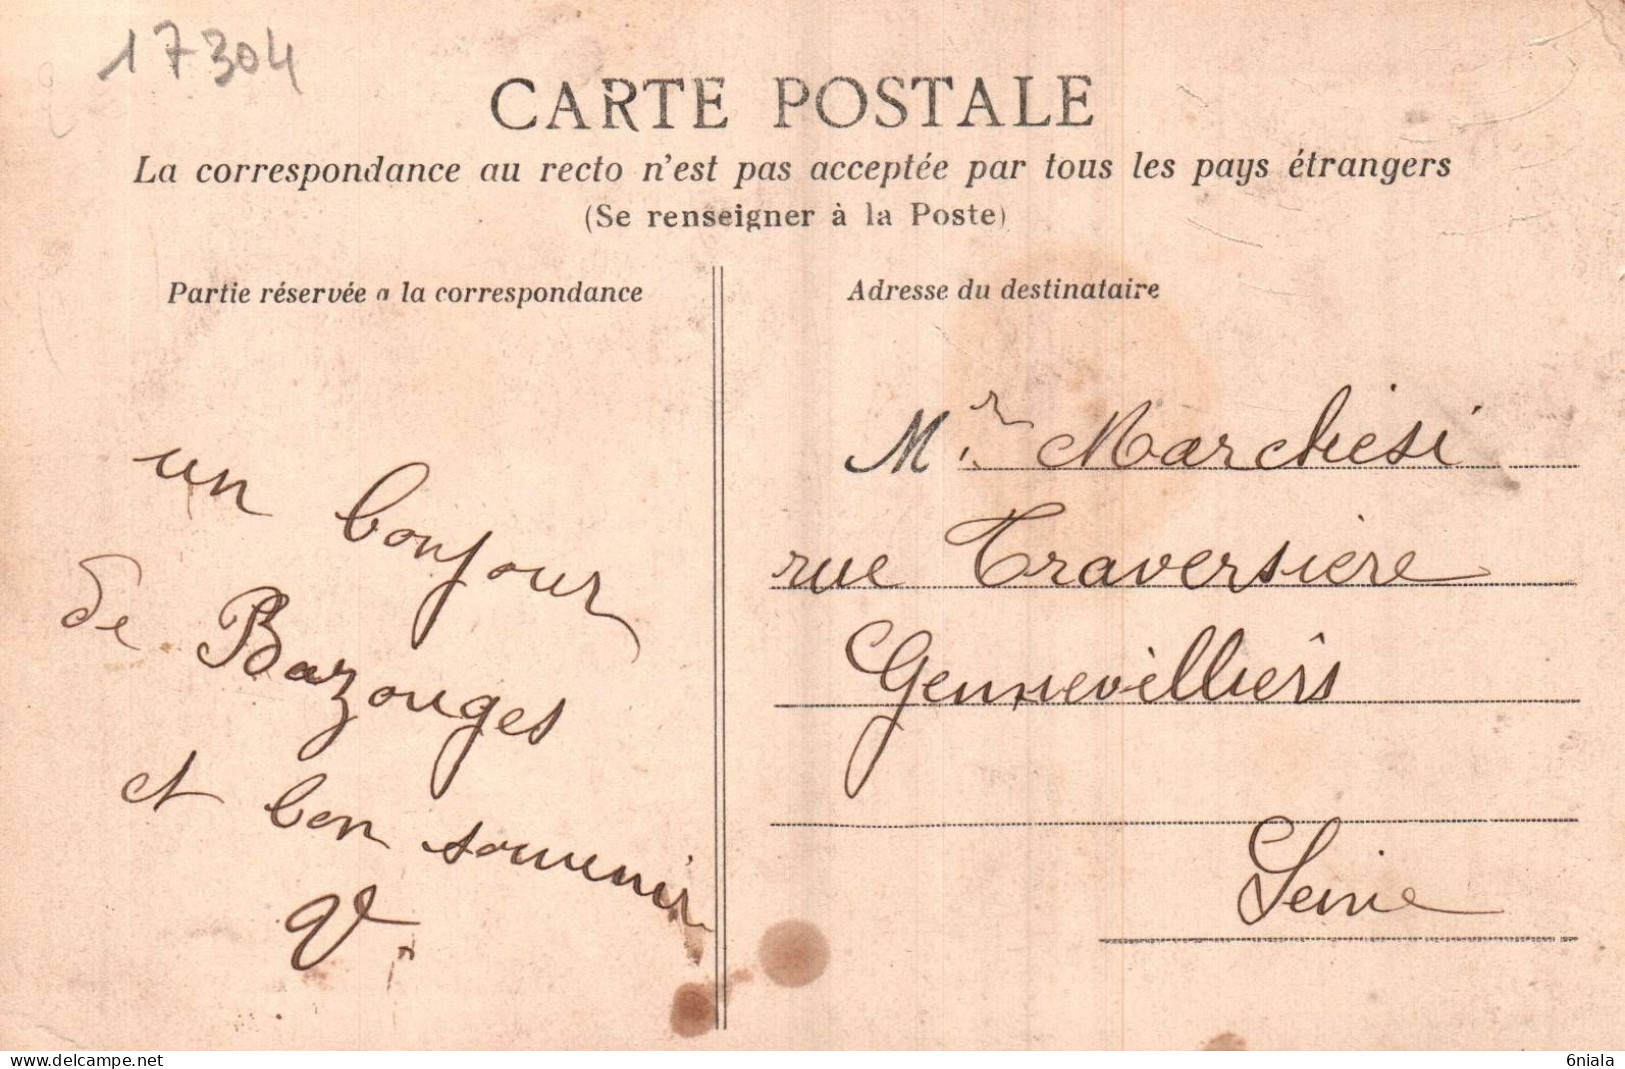 17304
CARTE POSTALE
La correspondance au recto n'est pas acceptée par tous les pays étrangers
(Se renseigner à la Poste)
Partie réservée a la correspondance
un bonjour
de Bazouges
et bon souvenir
V.
Adresse du destinataire
Mr. Marchesi
rue Traversière
Gennevilliers
Seine
www.delcampe.net
6niala